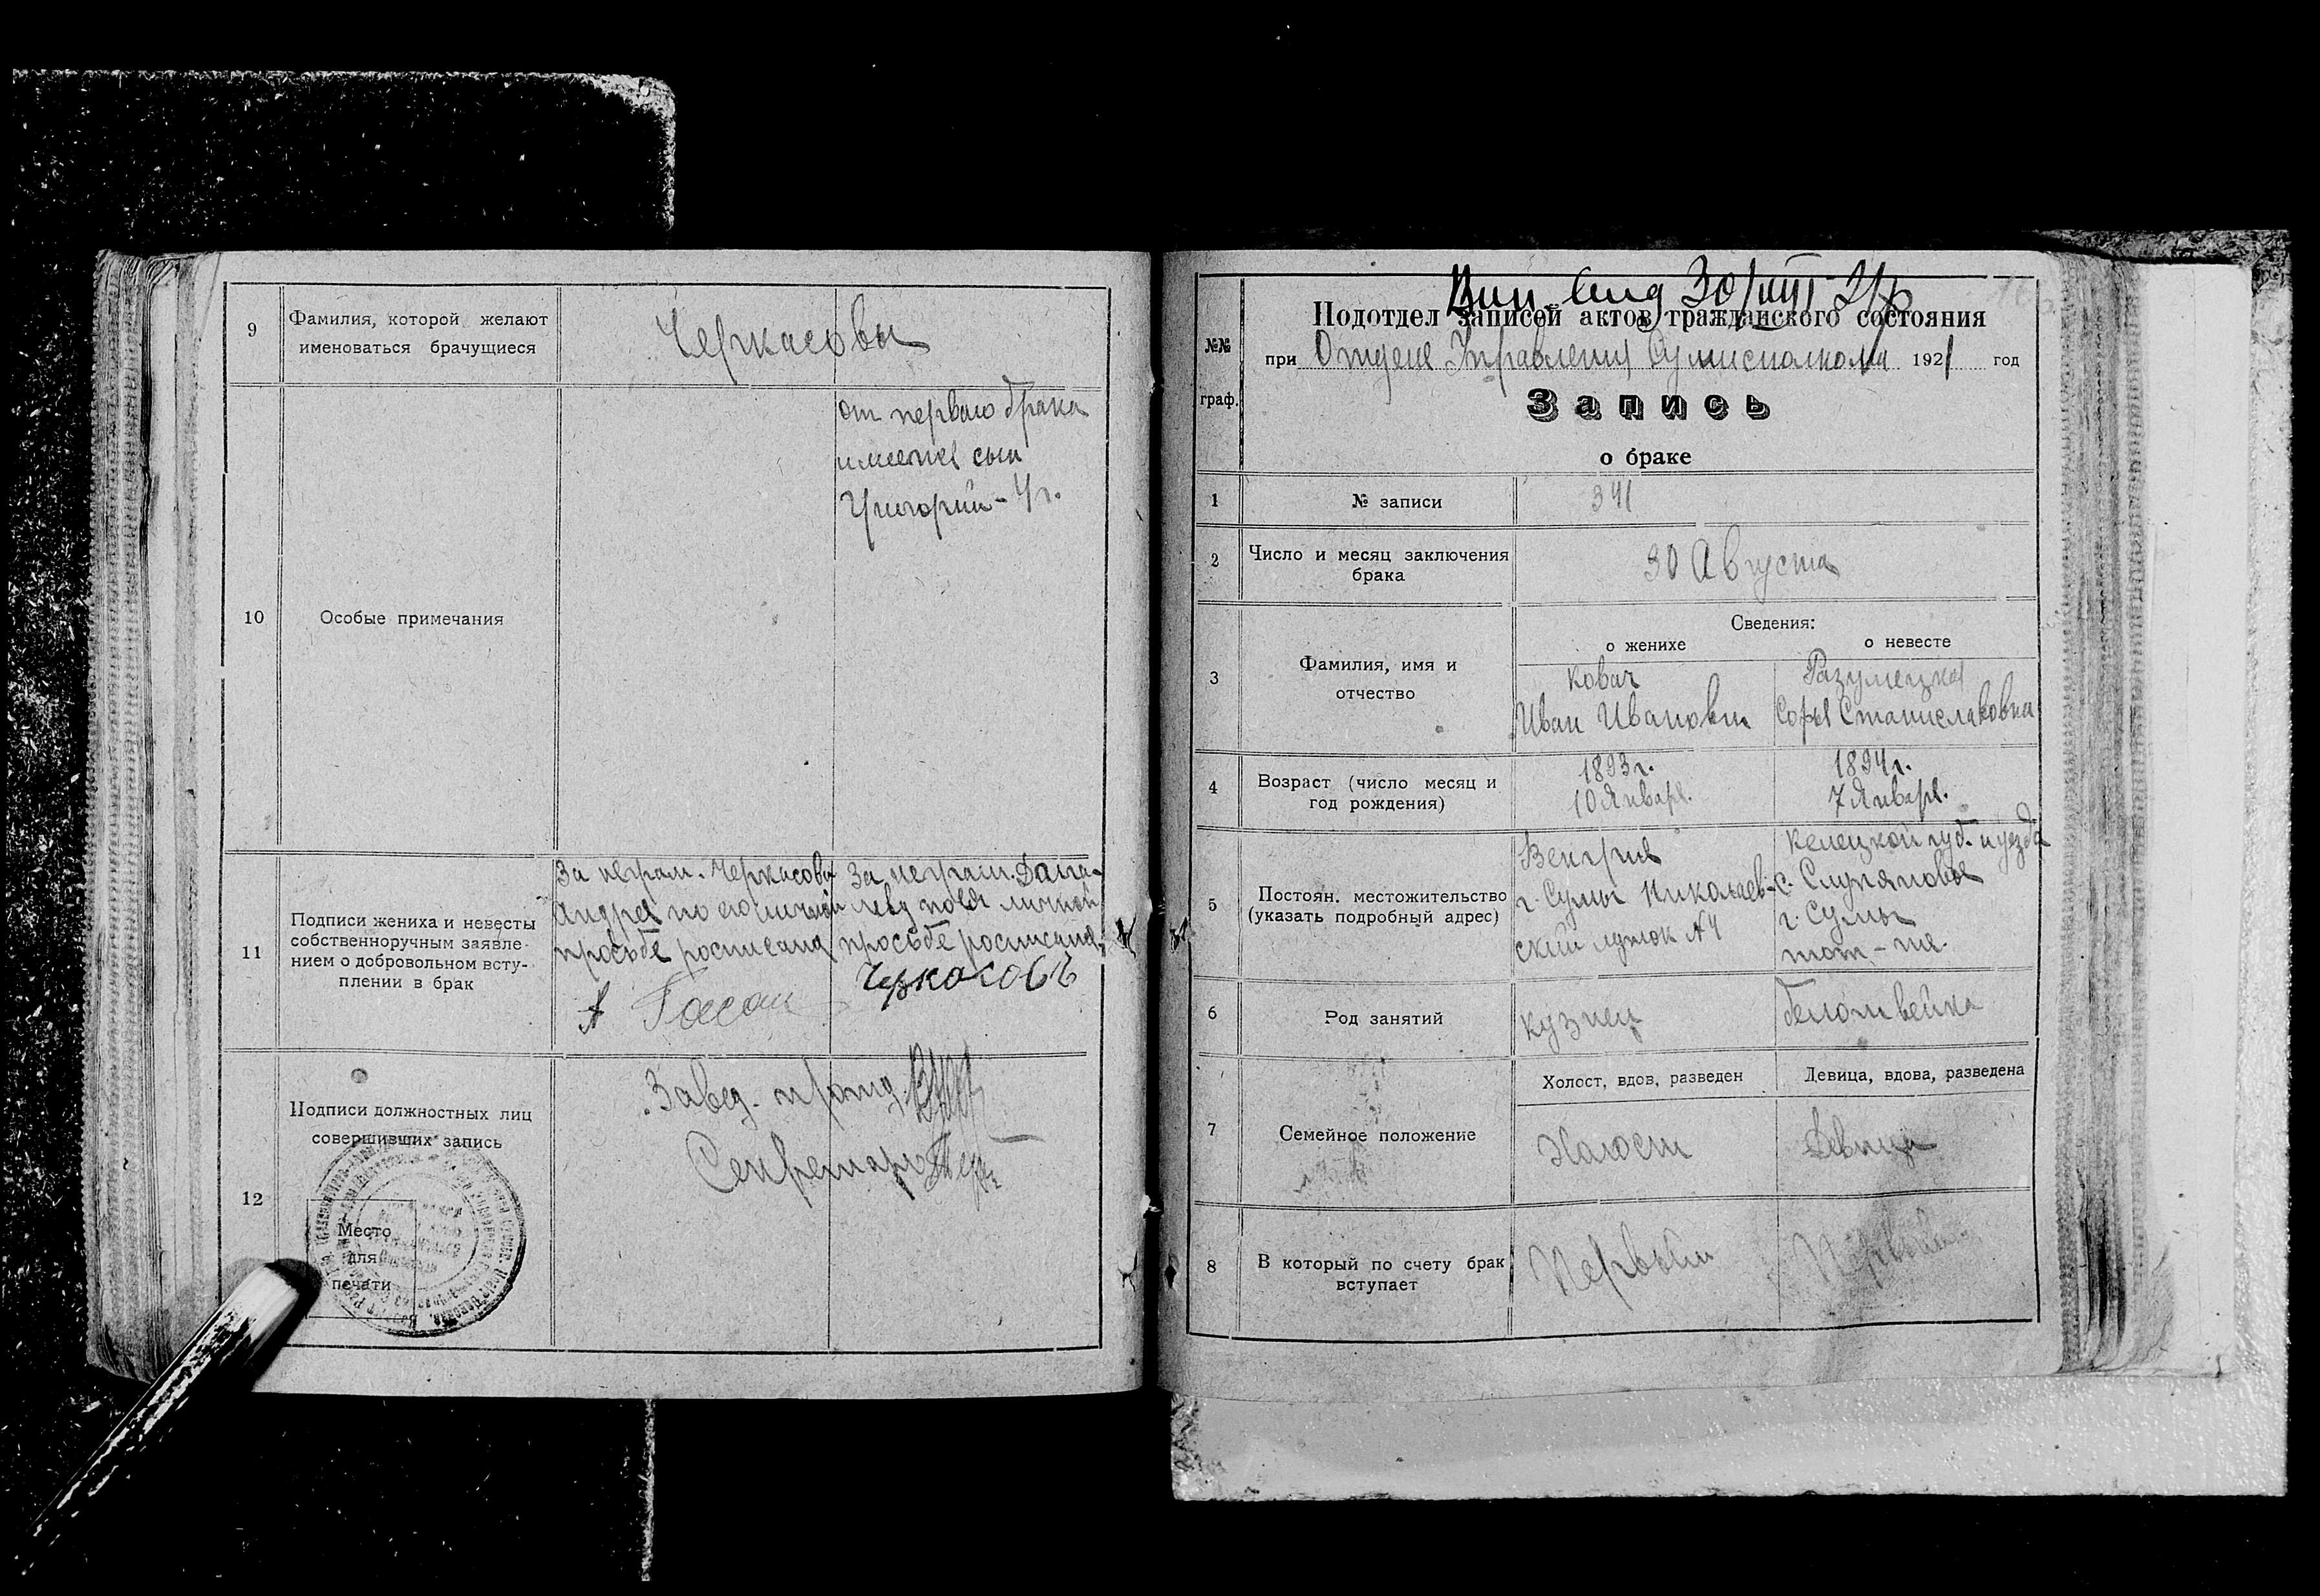 9
Фамилия, которой желают
именоваться брачущиеся
Черкасовы
10
Особые примечания
от первого брака
имеется сын
Григорий - 4 г.
11
Подписи жениха и невесты
собственноручным заявле-
нием о добровольном всту-
плении в брак
За неграм. Черкасова
Андрея по его личной
просьбе росписался
За неграм.
личной
просьбе росписался
Черкасовъ
12
Подписи должностных лиц
совершивших запись
Место
для
печати
Завед.
Секретарь
№№
граф.
30/VIII-21 г
Подотдел записей актов гражданского состояния
при Отделе Управления Сумисполкома 1921 год
Запись
о браке
1
№ записи
341
2
Число и месяц заключения
брака
30 Августа
3
Фамилия, имя и
отчество
Сведения:
о женихе
о невесте
Ковач
Иван Иванович
Разумецкая
Софья Станиславовна
4
Возраст (число месяц и
год рождения)
1893 г.
10 Января.
1894 г.
7 Января.
5
Постоян. местожительство
(указать подробный адрес)
Венгрия
г. Сумы Николаев-
ский № 4
Келецкой губ. и уезда
с.
г. Сумы
6
Род занятий
кузнец
белошвейка
7
Семейное положение
Холост, вдов, разведен
Девица, вдова, разведена
Холост
Девица
8
В который по счету брак
вступает
Первый
Первый